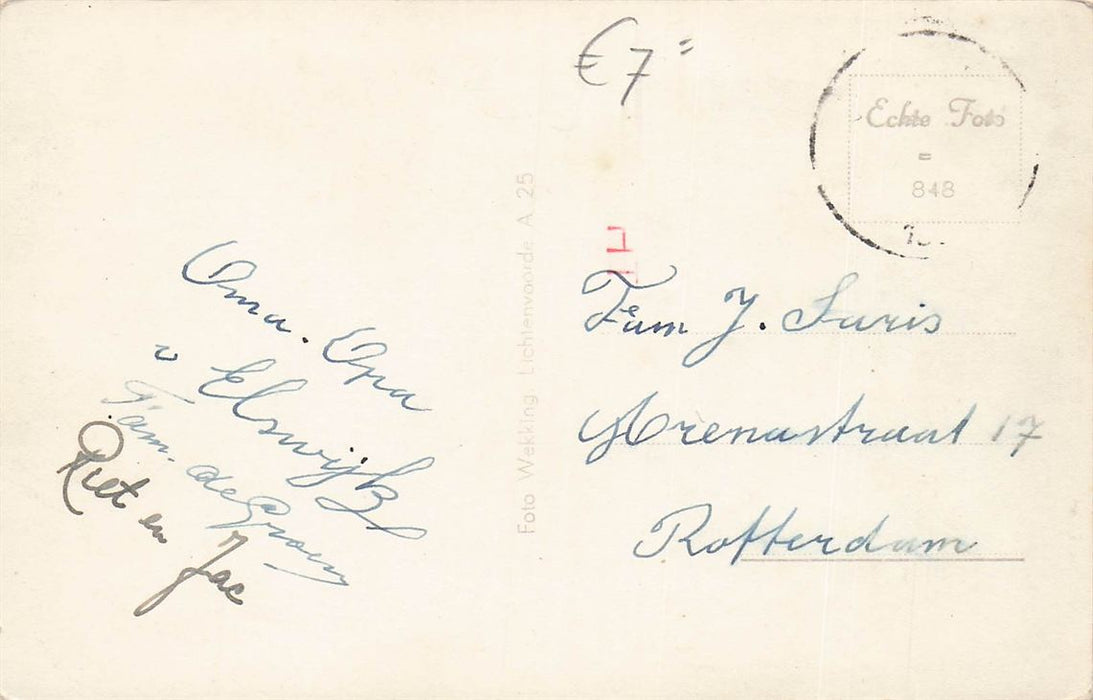 € 7 =
Echte Foto
=
848
Oma. Opa
v Elswijk
Fam. de Groen
Riet en Jac
Foto Wekking, Lichtenvoorde A 25
Fam J. Suris
17
Rotterdam